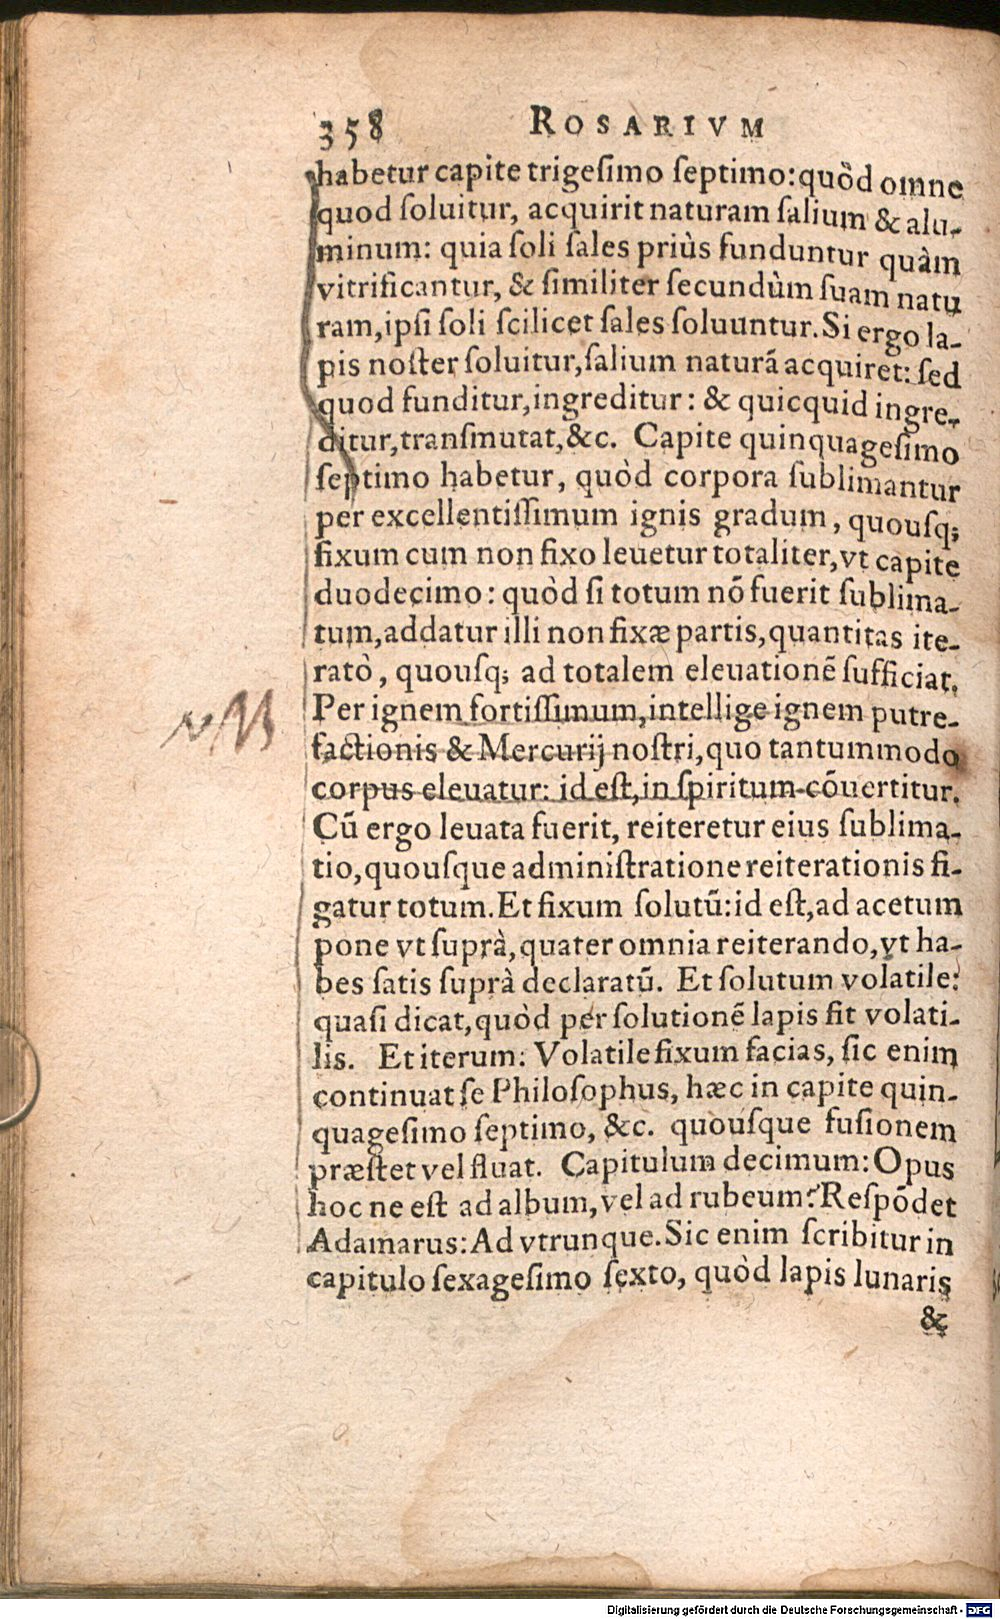 358 ROSARIVM
habetur capite trigesimo septimo: quòd omne
quod soluitur, acquirit naturam salium & alu-
minum: quia soli sales priùs funduntur quàm
vitrificantur, & similiter secundùm suam natu
ram, ipsi soli scilicet sales soluuntur. Si ergo la-
pis noster soluitur, salium naturā acquiret: sed
quod funditur, ingreditur: & quicquid ingre-
ditur, transmutat, &c. Capite quinquagesimo
septimo habetur, quòd corpora sublimantur
per excellentissimum ignis gradum, quousq;
fixum cum non fixo leuetur totaliter, vt capite
duodecimo: quòd si totum nō fuerit sublima-
tum, addatur illi non fixæ partis, quantitas ite-
ratò, quousq; ad totalem eleuationē sufficiat.
Per ignem fortissimum, intellige ignem putre-
factionis & Mercurij nostri, quo tantummodo
corpus eleuatur: id est, in spiritum cōuertitur.
Cū ergo leuata fuerit, reiteretur eius sublima-
tio, quousque administratione reiterationis fi-
gatur totum. Et fixum solutū: id est, ad acetum
pone vt suprà, quater omnia reiterando, vt ha-
bes satis suprà declaratū. Et solutum volatile:
quasi dicat, quòd per solutionē lapis fit volati-
lis. Et iterum: Volatile fixum facias, sic enim
continuat se Philosophus, hæc in capite quin-
quagesimo septimo, &c. quousque fusionem
præstet vel fluat. Capitulum decimum: Opus
hoc ne est ad album, vel ad rubeum? Respōdet
Adamarus: Ad vtrunque. Sic enim scribitur in
capitulo sexagesimo sexto, quòd lapis lunaris
&
Digitalisierung gefördert durch die Deutsche Forschungsgemeinschaft - DFG